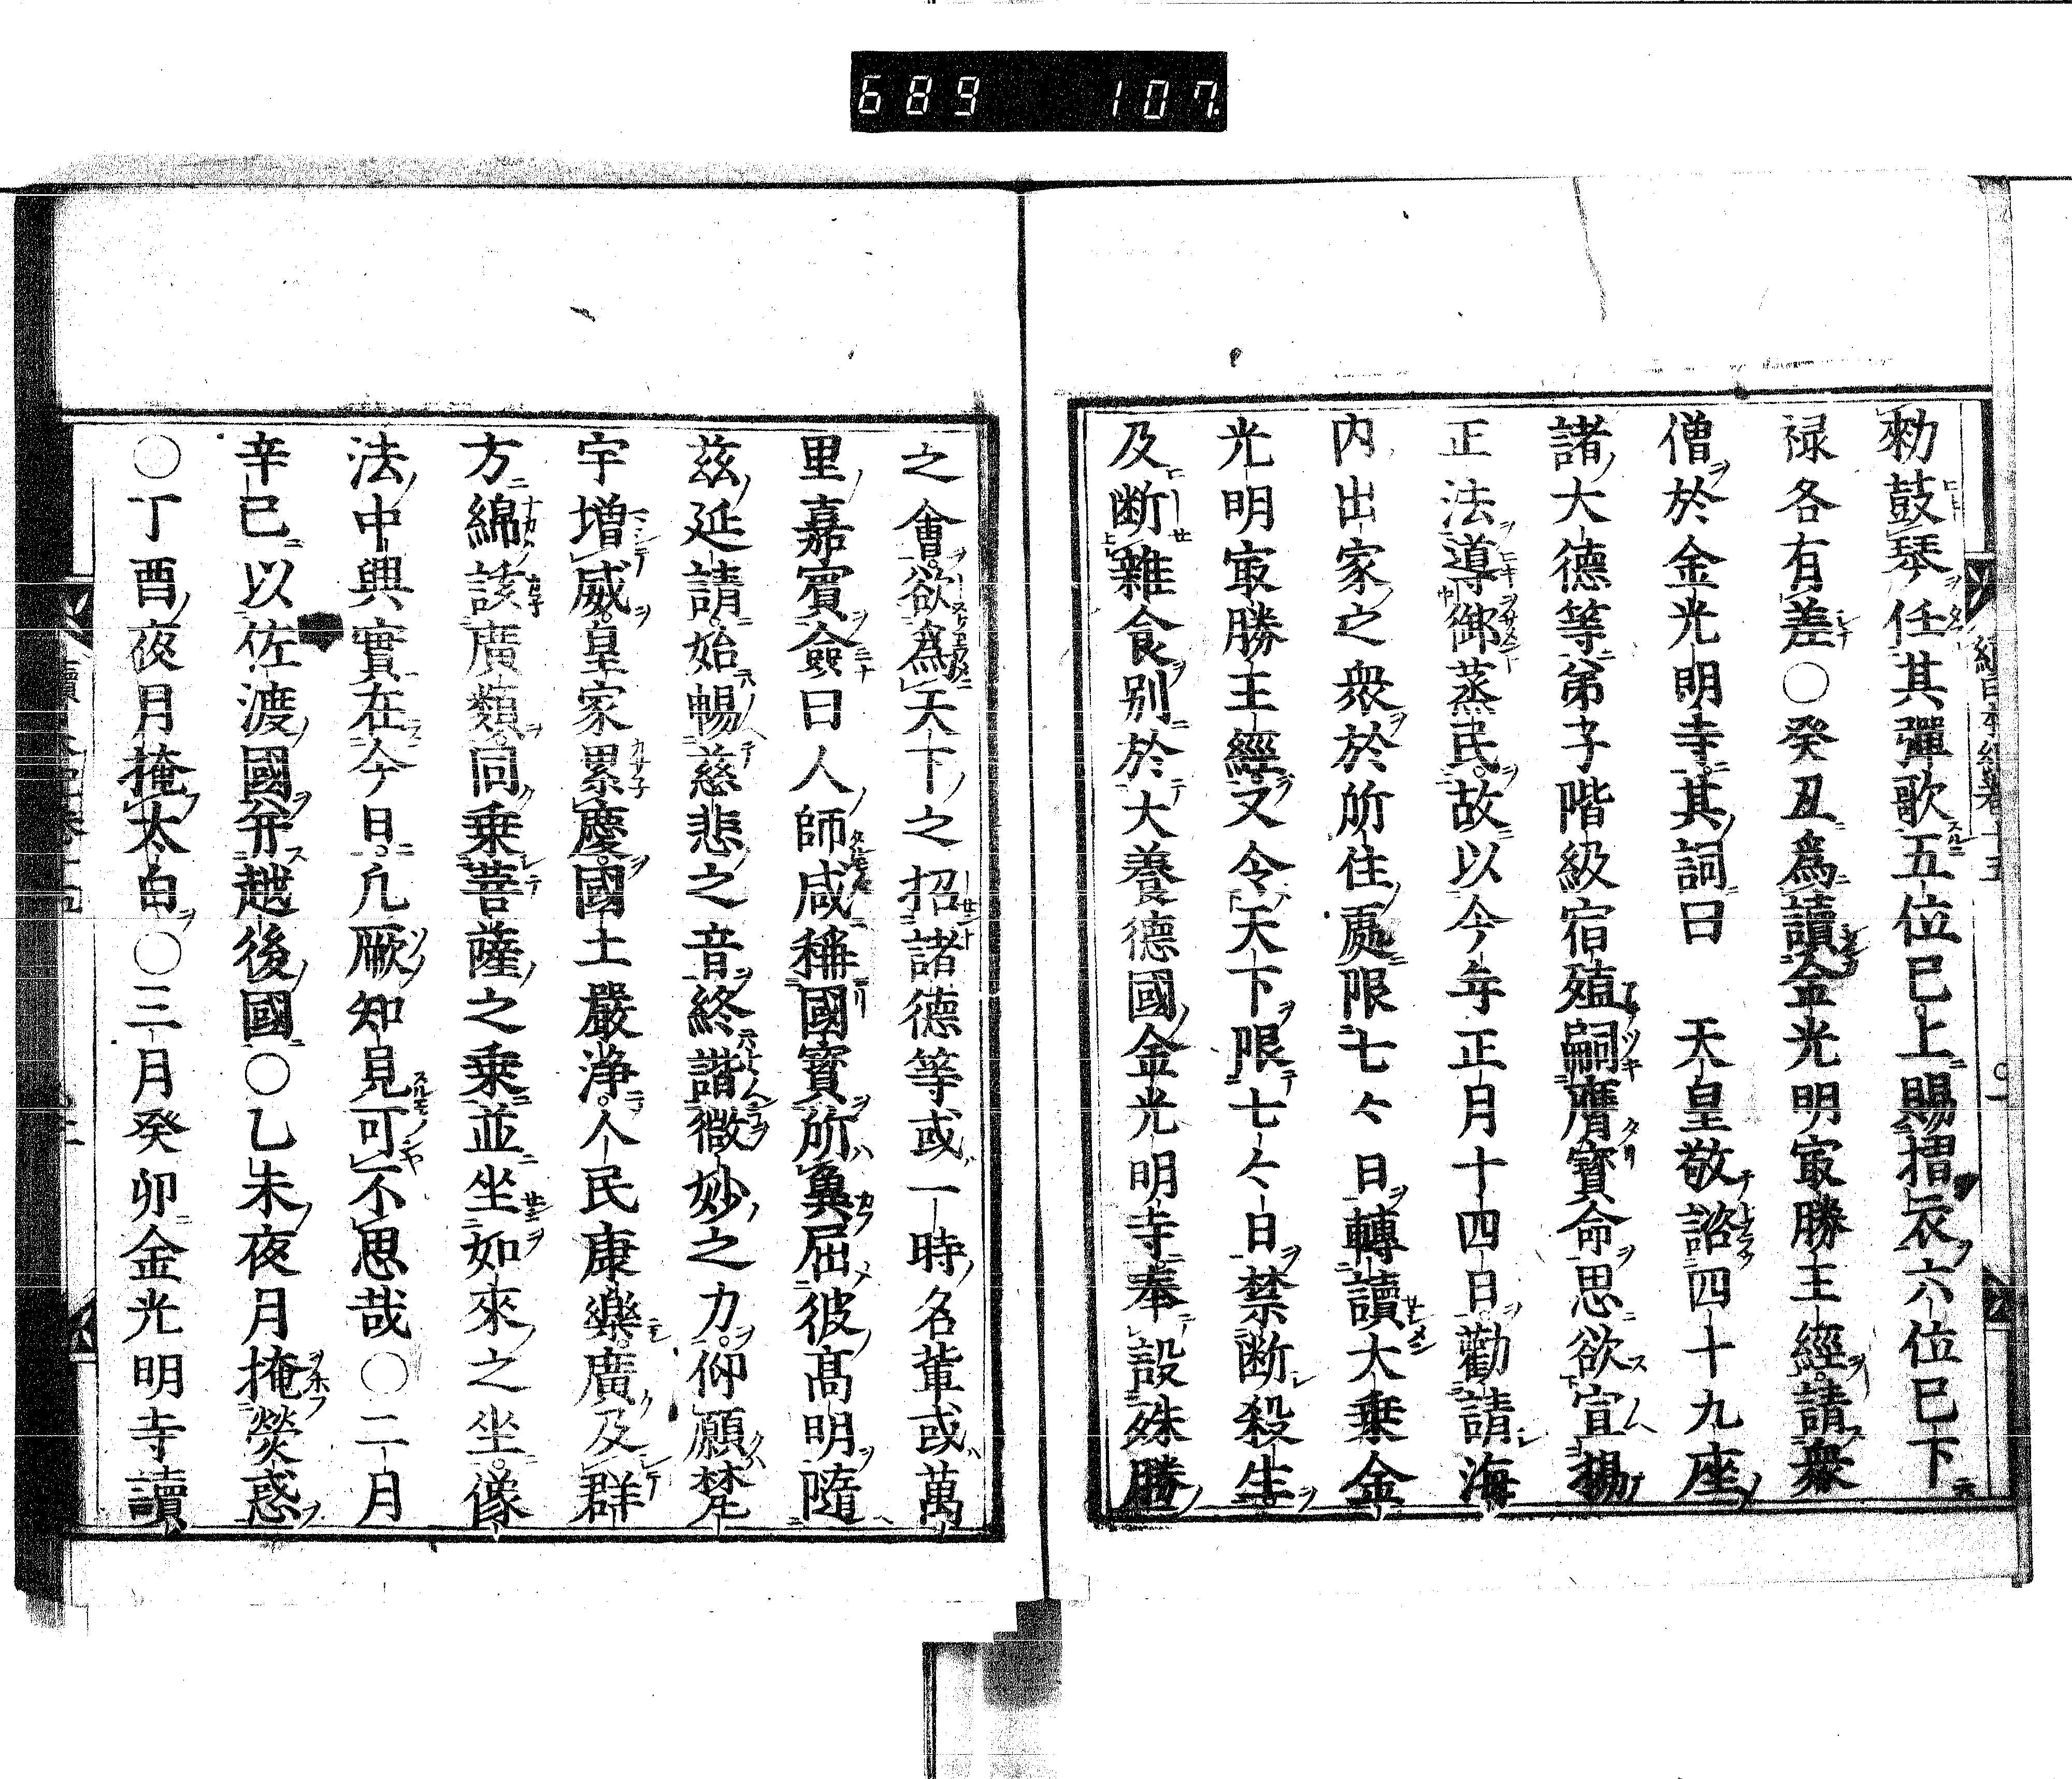 689 107
勅鼓琴任其彈歌五位已上賜摺衣六位已下
禄各有差○癸丑爲讀金光明㝡勝王經請衆
僧於金光明寺其詞曰 天皇敬諮四十九座
諸大德等弟子階級宿殖嗣膺寶命思欲宣揚
正法導御蒸民故以今年正月十四日勸請海
内出家之衆於所住處限七々日轉讀大乗金
光明㝡勝王經又令天下限七々日禁断殺生
及断雜食別於大養德國金光明寺奉設殊勝
之會欲爲天下之招諸德等或一時名輩或萬
里嘉賓僉曰人師咸稱國寶所冀屈彼髙明隨
茲延請始暢慈悲之音終諧微妙之力仰願梵
宇増威皇家累慶國土嚴淨人民康樂廣及群
方綿該廣類同乗菩薩之乗並坐如來之坐像
法中興實在今日凢厥知見可不思哉○二月
辛巳以佐渡國并越後國○乙未夜月掩熒惑
○丁酉夜月掩太白○三月癸卯金光明寺讀